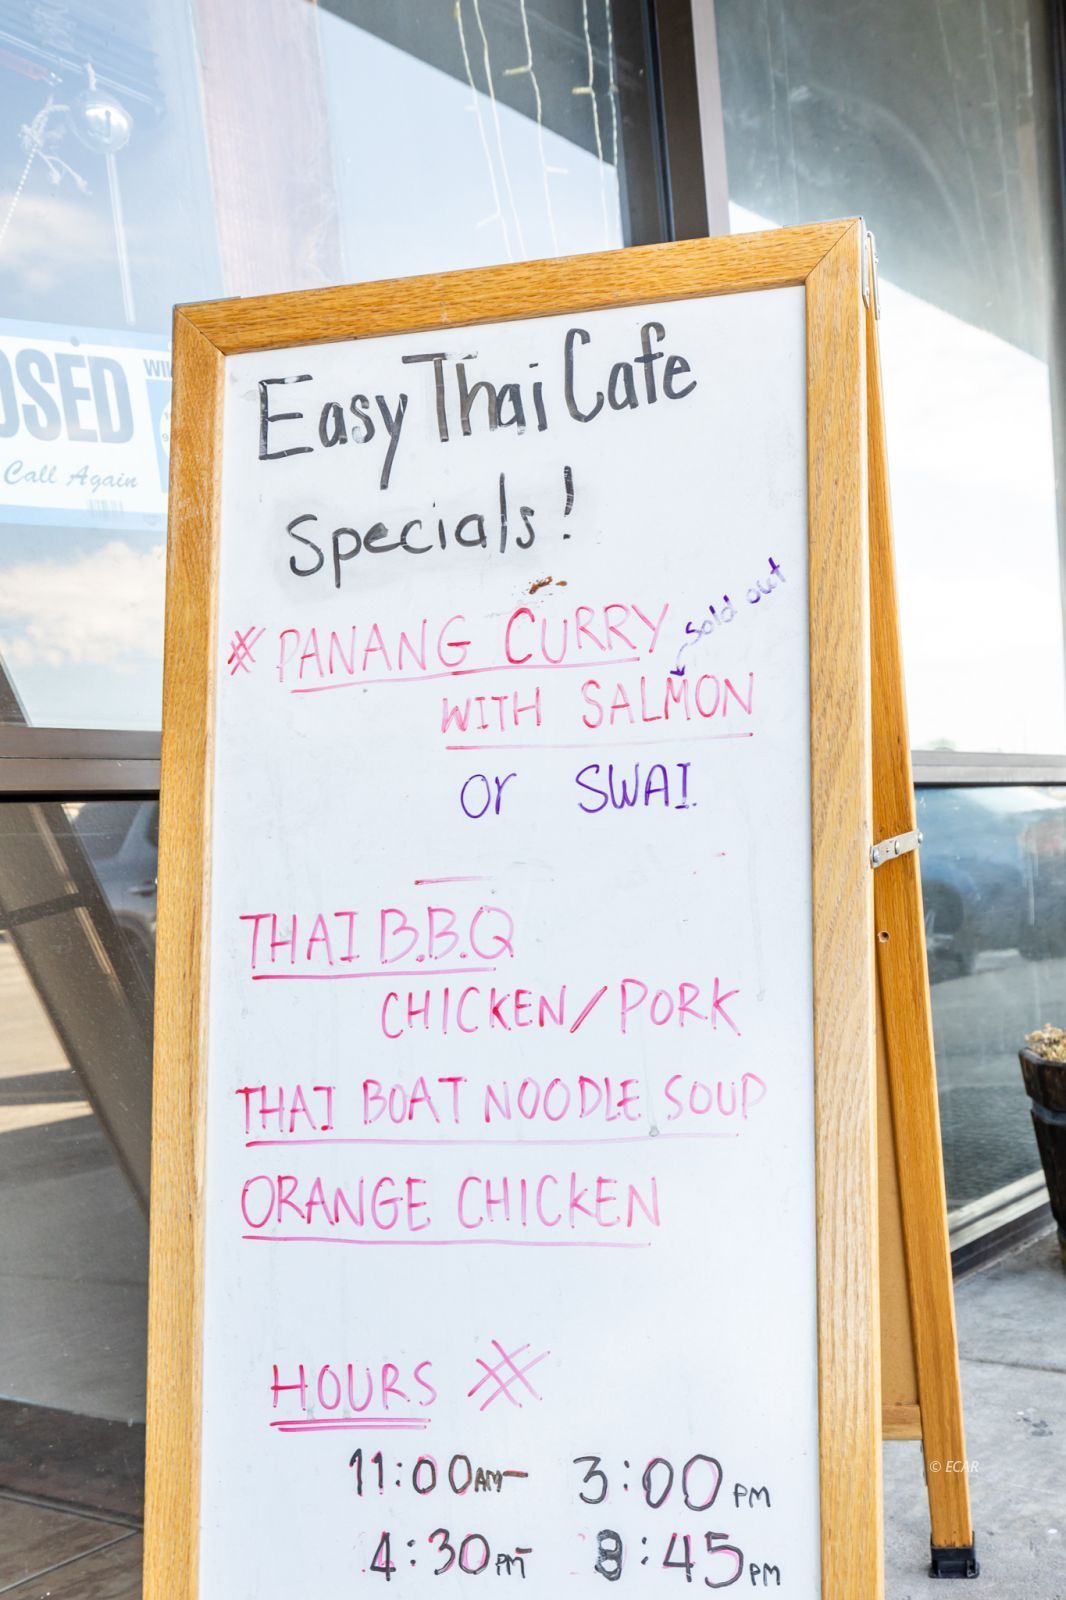 Easy Thai Cafe
Specials!
sold out
* PANANG CURRY
WITH SALMON
or SWAI
THAI B.B.Q
CHICKEN/PORK
THAI BOAT NOODLE SOUP
ORANGE CHICKEN
HOURS *
11:00AM- 3:00PM
4:30PM- 8:45PM
OSED
WIL
Call Again
© ECAR